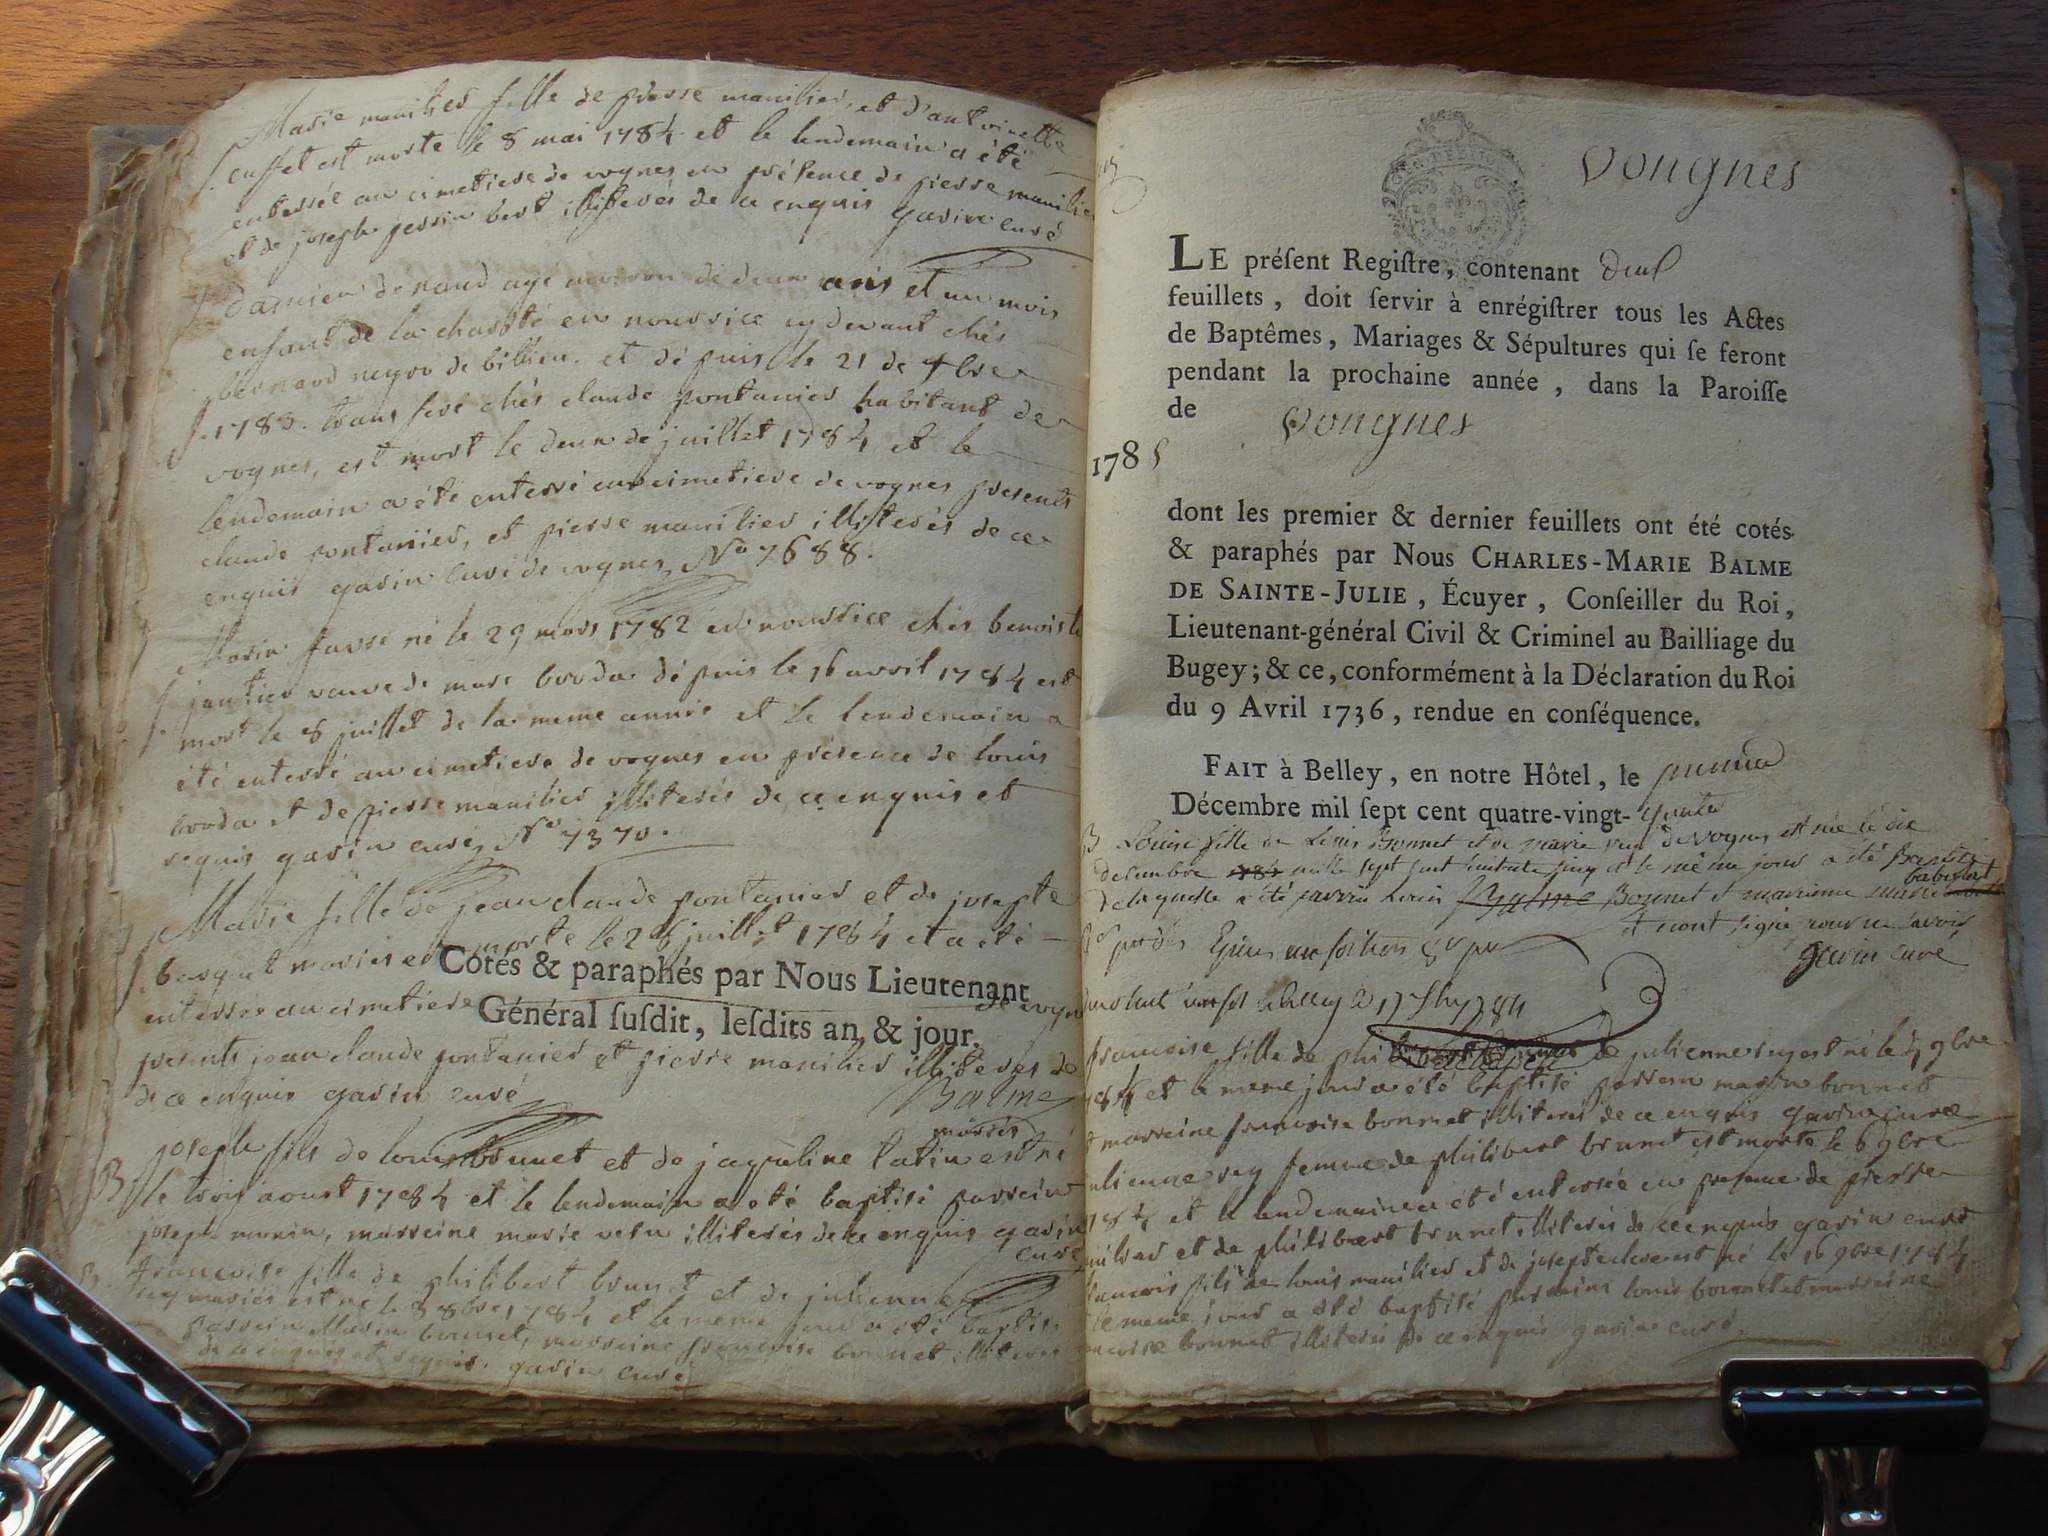 Marie manilier fille de pierre manilier, et d'antoinette
cuffet est morte le 8 mai 1784 et le lendemain a été
enterrée au cimetiere de vognes en présence de pierre manilier
et de joseph perrin bert illiterés de ce enquis gavin curé
damien dénoud agé environ de deux ans et un mois
enfant de la charité en nourrice cy devant chés
bernard neyro de billieu. et dépuis le 21 de 9bre
1783. transferé chés claude pontanier habitant de
vognes, est mort le deux de juillet 1784 et le
lendemain a été enterré au cimetiere de vognes presents
claude pontanier, et pierre manilier illiterés de ce
enquis gavin curé de vognes N° 7688.
Marin favre né le 29 mars 1782 en nourrice chés benoiste
jantier veuve de marc broda dépuis le 16 avril 1784 est
mort le 8 juillet de la meme année et le lendemain a
été enterré au cimetiere de vognes en présence de louis
broda et de pierre manilier illiterés de ce enquis et
requis gavin curé, N° 7370.
Marie fille de jean claude pontanier et de josepte
morte le 26 juillet 1784 et a été
mariés et Cotés & paraphés par Nous Lieutenant
enterrée au cimetiere de vognes
Général ſuſdit, leſdits an & jour.
presents jean claude pontanier et pierre manilier illiteres de
de ce enquis gavin curé
Balme
mariés
joseph fils de louis brunet et de jaqueline latin est né
B le trois aoust 1784 et le lendemain a été baptisé parrein
joseph monin, marreine marie vetu illiterés de ce enquis gavin
curé
B. francoise fille de philibert brunet et de julienne
rey mariés est né le 8 8bre 1784 et le meme jour a été baptisé
parrein Marin bonnet, marreine francoise bonnet illiterés
de ce enquis et requis. gavin curé
Vongnes
LE préſent Regiſtre, contenant deux
feuillets, doit ſervir à enrégiſtrer tous les Actes
de Baptêmes, Mariages & Sépultures qui ſe feront
pendant la prochaine année, dans la Paroiſſe
de Vongnes
1785
dont les premier & dernier feuillets ont été cotés
& paraphés par Nous CHARLES-MARIE BALME
DE SAINTE-JULIE, Écuyer, Conſeiller du Roi,
Lieutenant-général Civil & Criminel au Bailliage du
Bugey; & ce, conformément à la Déclaration du Roi
du 9 Avril 1736, rendue en conſéquence.
FAIT à Belley, en notre Hôtel, le premier
Décembre mil ſept cent quatre-vingt-quatre
B Louise fille de Louis Bonnet et de marie rey de vognes est née le dix
decembre mille sept cent huitante cinq et le même jour a été
baptist
de laquelle a été parrin Louis Balme Bonnet et marienne marie
et n'ont signé pour ne savoir
gavin curé
francoise fille de philibert brunet de julienne rey est né le 5 9bre
1784 et le meme jour a été baptisé parrein marin bonnet
marreine francoise bonnet illiterés de ce enquis gavin curé
julienne rey femme de philibert brunet est morte le 6 9bre
1784 et le lendemain a été enterrée en presence de pierre
manilier et de philibert brunet illiterés de ce enquis gavin curé
francois fils de louis manilier et de josepte est né le 16 9bre 1784
le meme jour a été baptisé parreins louis bonnet et marreine
francoise bonnet illiterés de ce enquis gavin curé